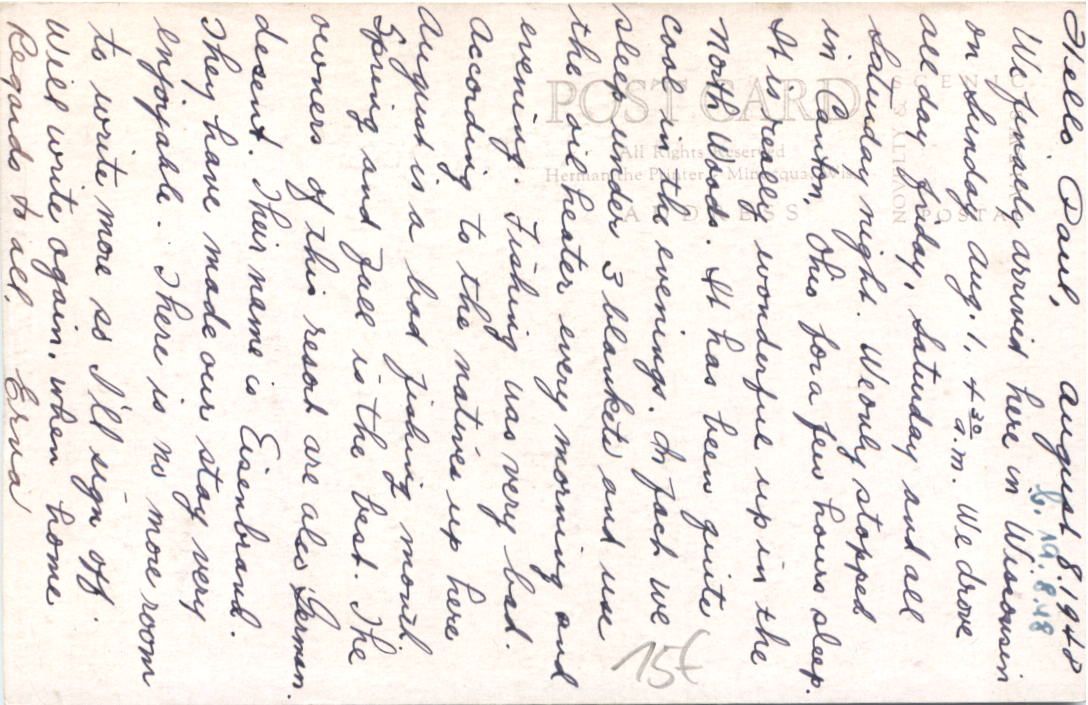 Hello Paul, August 8. 1948
b. 19.8.48
We finally arrived here in Wisconsin
on Sunday Aug. 1. 4 30 a.m. We drove
all day Friday, Saturday and all
Saturday night. We only stopped
in Canton, Ohio for a few hours sleep.
It is really wonderful up in the
North Woods. It has been quite
cool in the evenings. In fact we
sleep under 3 blankets and use
the oil heater every morning and
evening. Fishing was very bad.
According to the natives up here
August is a bad fishing month.
Spring and Fall is the best. The
owners of this resort are also German.
desent. Their name is Eisenbrand.
They have made our stay very
enjoyable. There is no more room
to write more so I'll sign off.
Will write again, when home
Regards to all, Erna
15€
POST CARD
All Rights Reserved
Herman the Printer, Minocqua, Wis.
ADDRESS
SCENIC
NOVELTY
POSTA